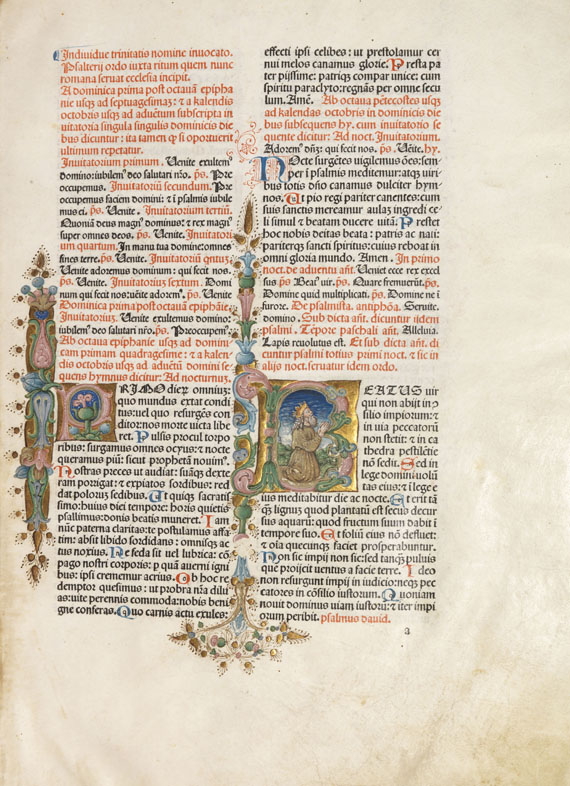 Individue trinitatis nomine inuocato.
Psalterij ordo iuxta ritum quem nunc
romana seruat ecclesia incipit.
A dominica prima post octauā epipha
nie usqȝ ad septuagesimaȝ: ⁊ a kalendis
octobris usqȝ ad aduētum subscripta in
uitatoria singula singulis dominicis die
bus dicuntur: ita tamen ꝙ si oportuerit
ultimum repetatur.
Inuitatorium primum. Uenite exultem⁹
domino: iubilem⁹ deo salutari nr̄o. p̄s. Pre
occupemus. Inuitatoriū secundum. Pre
occupemus faciem domini: ⁊ ī psalmis iubile
mus ei. p̄s. Uenite. Inuitatoriū tertiū.
Quoniā deus magn⁹ dominus: ⁊ rex magn⁹
super omnes deos. p̄s. Uenite. Inuitatori
um quartum. In manu tua domine: omnes
fines terre. p̄s. Uenite. Inuitatoriū qntuȝ.
Uenite adoremus dominum: qui fecit nos.
p̄s. Uenite. Inuitatorium sextum. Domi
num qui fecit nos: uēite adorem⁹. p̄s. Uenite.
Dominica prima post octauā epiphāie
Inuitatoriuȝ. Uenite exultemus domino:
iubilem⁹ deo salutari nr̄o. p̄s. Preoccupem⁹.
Ab octaua epiphanie usqȝ ad domini
cam primam quadragesime: ⁊ a kalen
dis octobris usqȝ ad aduētū domini se
quens hymnus dicitur: Ad nocturnuȝ.
PRIMO dierȝ omniuȝ:
quo mundus extat condi
tus: uel quo resurgēs con
ditor: nos morte uicta libe
ret. Pulsis procul torpo
ribus: surgamus omnes ocyus: ⁊ nocte
queramus piū: sicut prophetā nouim⁹.
Nostras preces ut audiat: suāqȝ dexte
ram porrigat: ⁊ expiatos sordibus: red
dat poloruȝ sedibus. Ut quiqȝ sacratis
simo: huius diei tempore: horis quietis
psallimus: donis beatis muneret. Iam
nūc paterna claritas: te postulamus affa
tim: absit libido sordidans: omnisqȝ ac
tus noxius. Ne feda sit uel lubrica: cō
pago nostri corporis: ꝑ quā auerni igni
bus: ipsi crememur acrius. Ob hoc re
demptor quesumus: ut probra nr̄a dilu
as: uite perennis commoda: nobis beni
gne conferas. Quo carnis actu exules:
effecti ipsi celibes: ut prestolamur cer
nui melos canamus glorie. Presta pa
ter pijssime: patriqȝ compar unice: cum
spiritu paraclyto: regnās per omne secu
lum. Amē. Ab octaua pētecostes usqȝ
ad kalendas octobris in dominicis die
bus subsequens hy. cum inuitatorio se
quente dicitur: Ad noct. Inuitatorium.
Adorem⁹ dn̄ȝ: qui fecit nos. p̄s. Uēite. hy.
Nocte surgētes uigilemus ōēs: sem
per ī psalmis meditemur: atqȝ uiri
bus totis dn̄o canamus dulciter hym
nos. Ut pio regi pariter canentes: cum
suis sanctis mereamur aulaȝ ingredi ce
li simul ⁊ beatam ducere uitā. Prestet
hoc nobis deitas beata: patris ac nati:
pariterqȝ sancti spiritus: cuius reboat in
omni gloria mundo. Amen. In primo
noct. de aduentu an̄t. Ueniet ecce rex excel
sus p̄s Beat⁹ uir. p̄s. Quare fremuerūt. p̄s.
Domine quid multiplicati. p̄s. Domine ne ī
furore. De psalmista. antiphōa. Seruite.
domino. Sub dicta an̄t. dicuntur idem
psalmi. Tēpore paschali an̄t. Alleluia.
Lapis reuolutus est. Et sub dicta an̄t. di
cuntur psalmi totius primi noct. ⁊ sic in
alijs noct. seruatur idem ordo.
BEATUS uir
qui non abijt in cō
silio impiorum: ⁊
in uia peccatorū
non stetit: ⁊ in ca
thedra pestilētie
nō sedit. Sed in
lege domini uolū
tas eius: ⁊ ī lege e
ius meditabitur die ac nocte. Et erit tā
qȝ lignuȝ quod plantatū est secus decur
sus aquarū: quod fructum suum dabit ī
tempore suo. Et foliū eius nō defluet:
⁊ oīa quecunqȝ faciet prosperabuntur.
Non sic impij non sic: sed tanqȝ puluis
que proijcit uentus a facie terre. Ideo
non resurgunt impij in iudicio: necqȝ pec
catores in cōsilio iustorum. Quoniam
nouit dominus uiam iustorū: ⁊ iter impi
orum peribit. psalmus dauid.
a